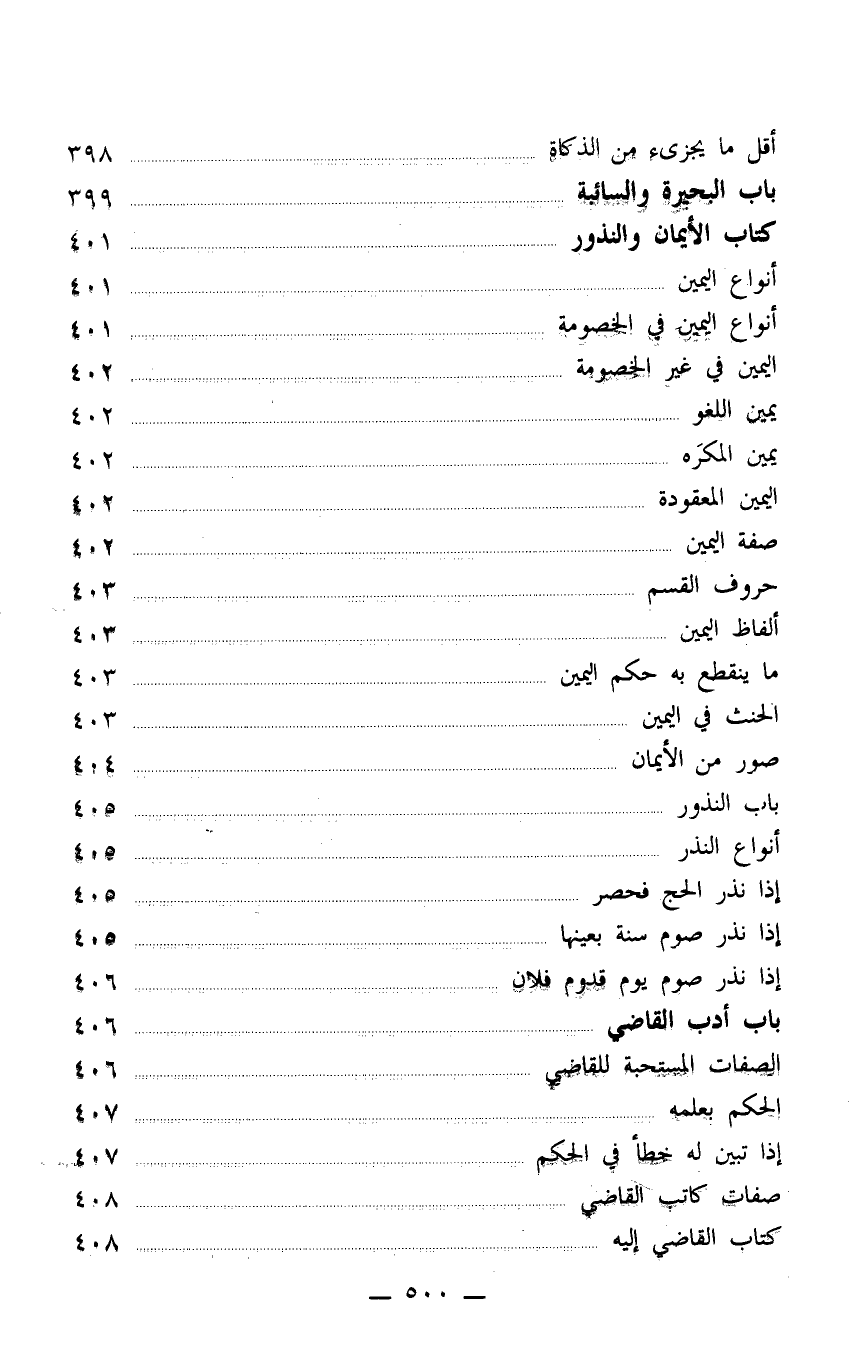 أقل ما يجزىء من الذكاة ٣٩٨
باب البحيرة والسائبة ٣٩٩
كتاب الأيمان والنذور ٤٠١
أنواع اليمين ٤٠١
أنواع اليمين في الخصومة ٤٠١
اليمين في غير الخصومة ٤٠٢
يمين اللغو ٤٠٢
يمين المكرَه ٤٠٢
اليمين المعقودة ٤٠٢
صفة اليمين ٤٠٢
حروف القسم ٤٠٣
ألفاظ اليمين ٤٠٣
ما ينقطع به حكم اليمين ٤٠٣
الحنث في اليمين ٤٠٣
صور من الأيمان ٤٠٤
باب النذور ٤٠٥
أنواع النذر ٤٠٥
إذا نذر الحج فحصر ٤٠٥
إذا نذر صوم سنة بعينها ٤٠٥
إذا نذر صوم يوم قدوم فلان ٤٠٦
باب أدب القاضي ٤٠٦
الصفات المستحبة للقاضي ٤٠٦
الحكم بعلمه ٤٠٧
إذا تبين له خطأ في الحكم ٤٠٧
صفات كاتب القاضي ٤٠٨
كتاب القاضي إليه ٤٠٨
— ٥٠٠ —